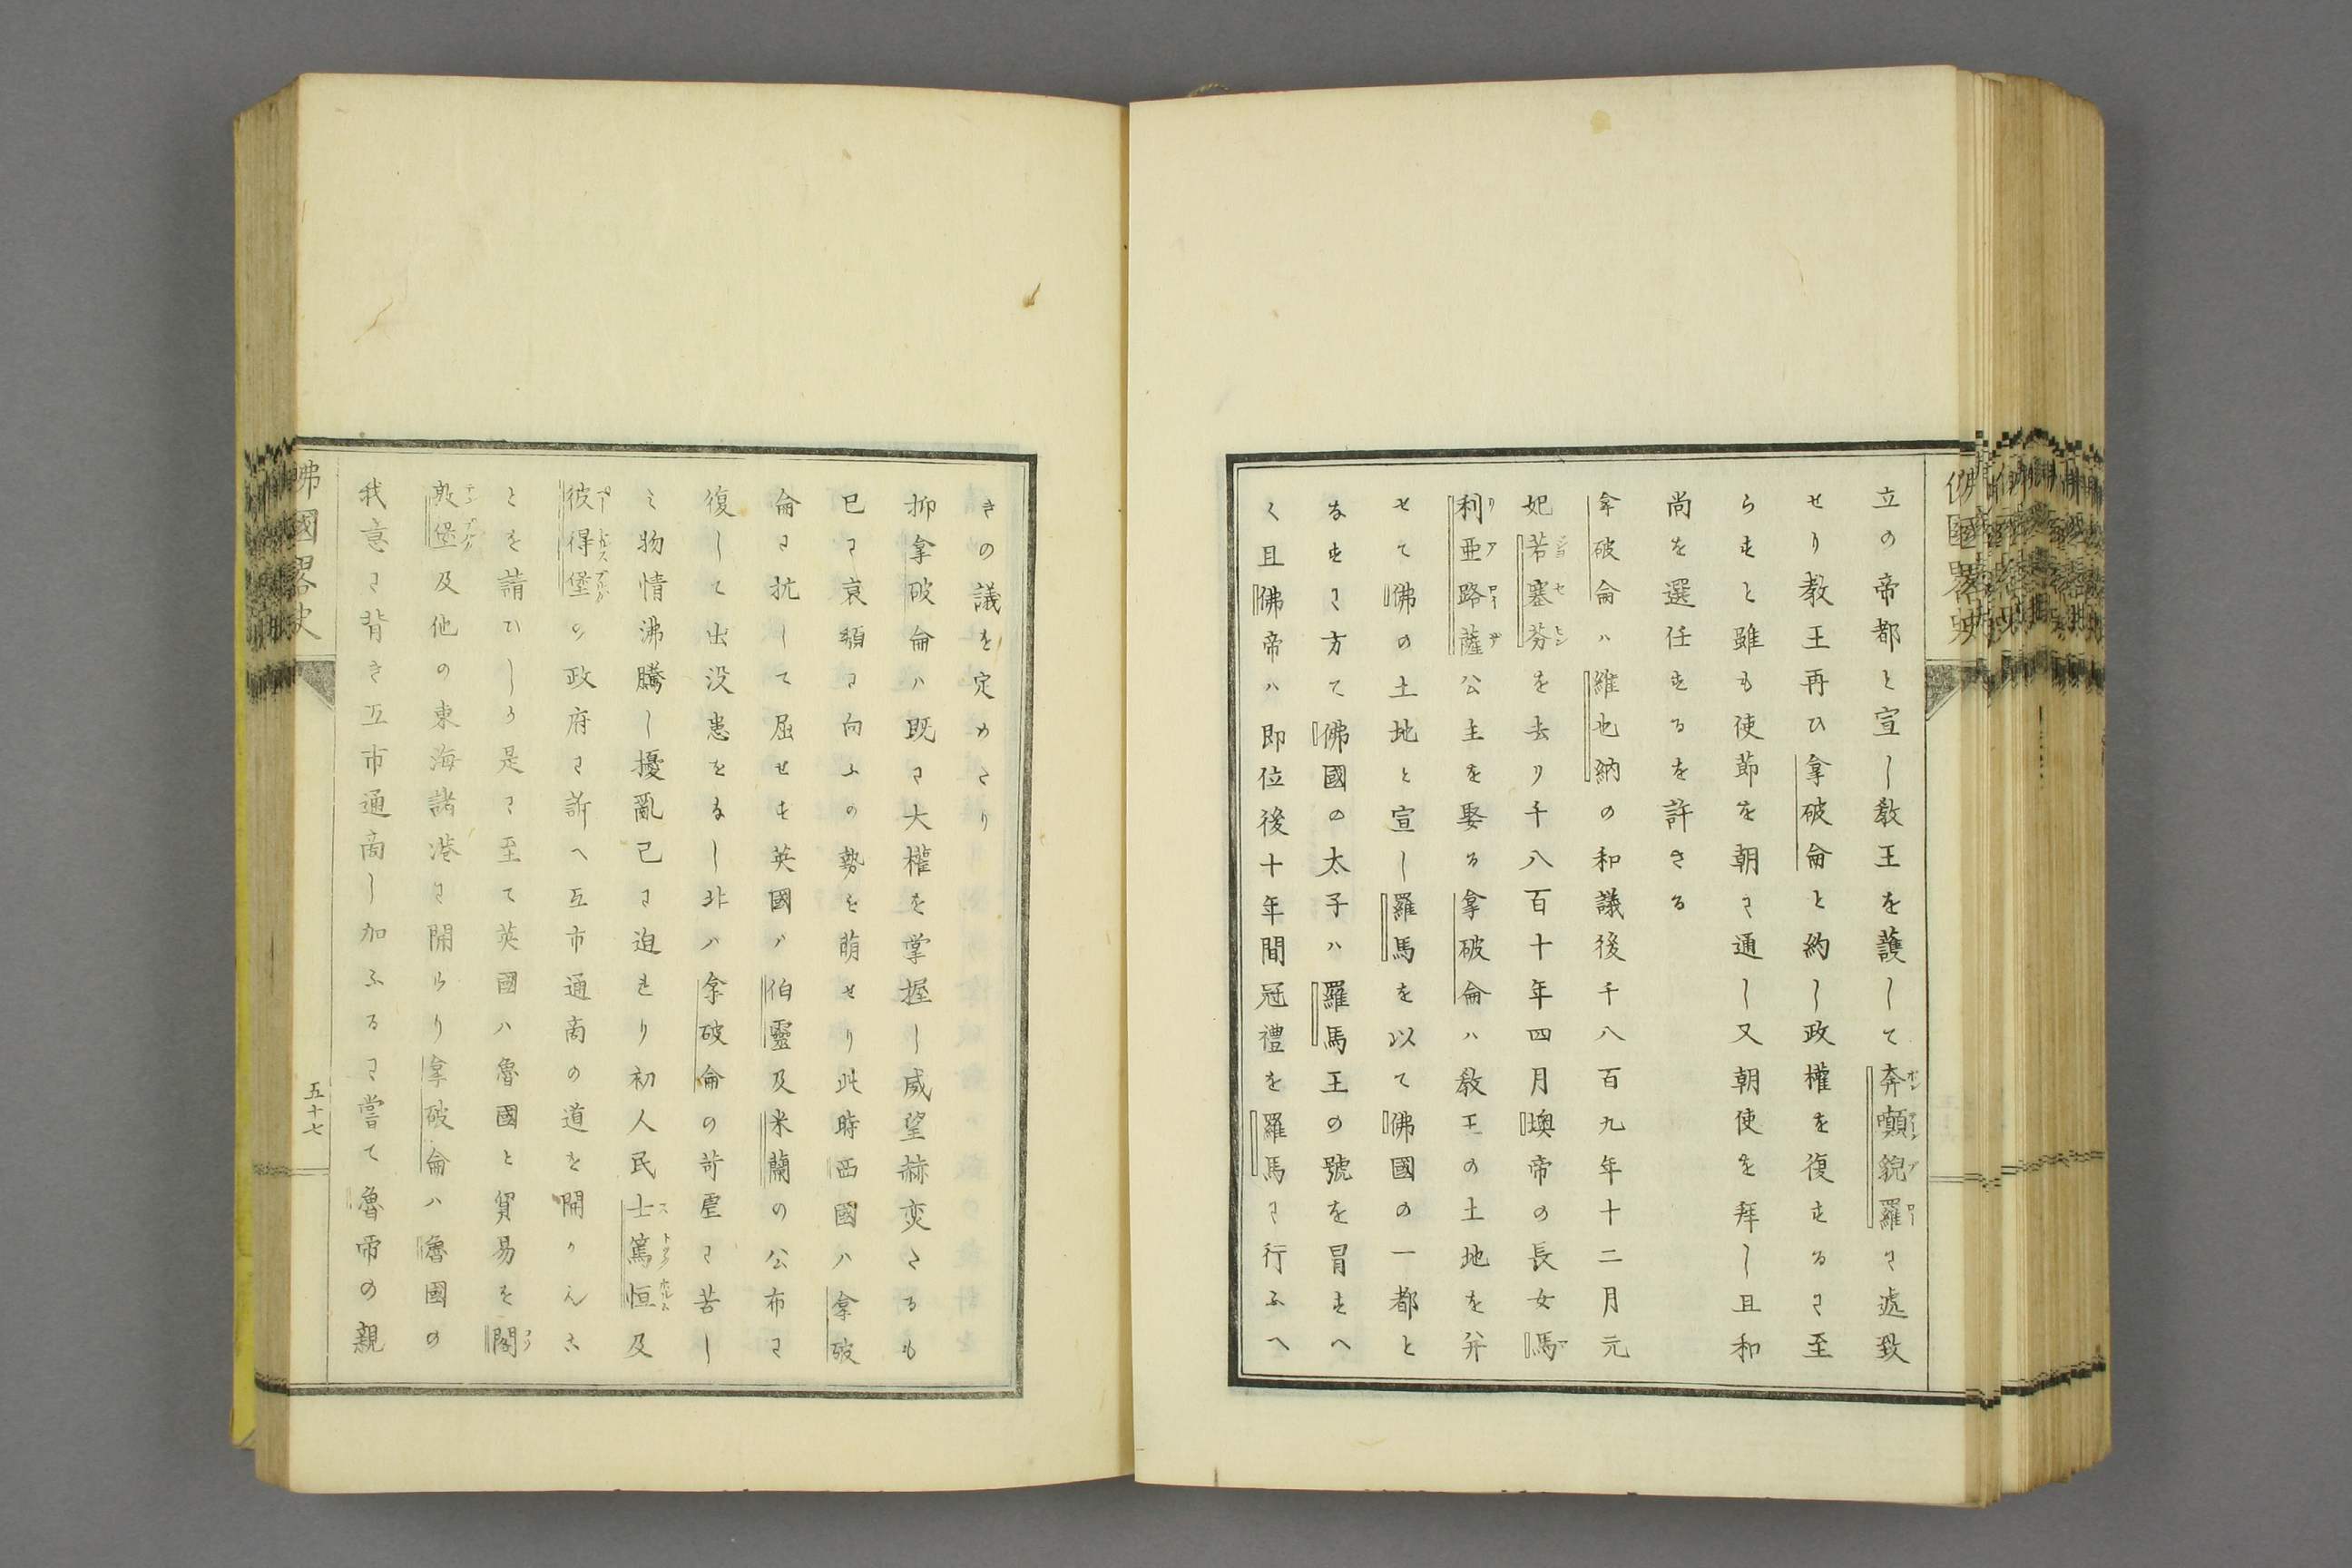 立の帝都と宣し教王を護して奔顚貌羅に遞致
せり教王再ひ拿破侖と約し政權を復するに至
らすと雖も使節を朝に通し又朝使を拜し且和
尚を選任するを許さる
拿破侖ハ維也納の和議後千八百九年十二月元
妃若塞芬を去り千八百十年四月墺帝の長女馬
利亜路薩公主を娶る拿破侖ハ教王の土地を并
せて佛の土地と宣し羅馬を以て佛國の一都と
なすに方て佛國の太子ハ羅馬王の號を冒すへ
く且佛帝ハ即位後十年間冠禮を羅馬に行ふへ
きの議を定めたり
抑拿破侖ハ既に大權を掌握し威望赫奕たるも
已に衰頽に向ふの勢を萌せり此時西國ハ拿破
侖に抗して屈せす英國ハ伯靈及米蘭の公布に
復して出没患をなし非ハ拿破侖の苛虐に苦し
ミ物情沸騰し擾亂已に迫れり初人民士篤恒及
彼得堡の政府に訴へ互市通商の道を開かんこ
とを請ひしろ是に至て英國ハ魯國と貿易を閣
敦堡及他の東海諸港に開らり拿破侖ハ魯國の
我意に背き互市通商し加ふるに嘗て魯帝の親
佛國畧史
五十七